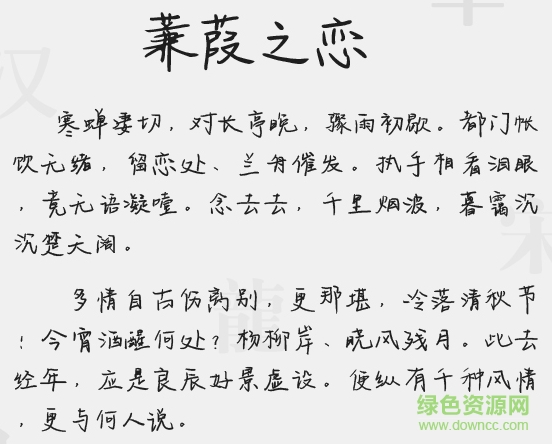 蒹葭之恋
寒蝉凄切，对长亭晚，骤雨初歇。都门帐
饮无绪，留恋处、兰舟催发。执手相看泪眼
，竟无语凝噎。念去去，千里烟波，暮霭沉
沉楚天阔。
多情自古伤离别，更那堪，冷落清秋节
！今宵酒醒何处？杨柳岸、晓风残月。此去
经年，应是良辰好景虚设。便纵有千种风情
，更与何人说。
汉
宋
龍
绿色资源网
www.downcc.com